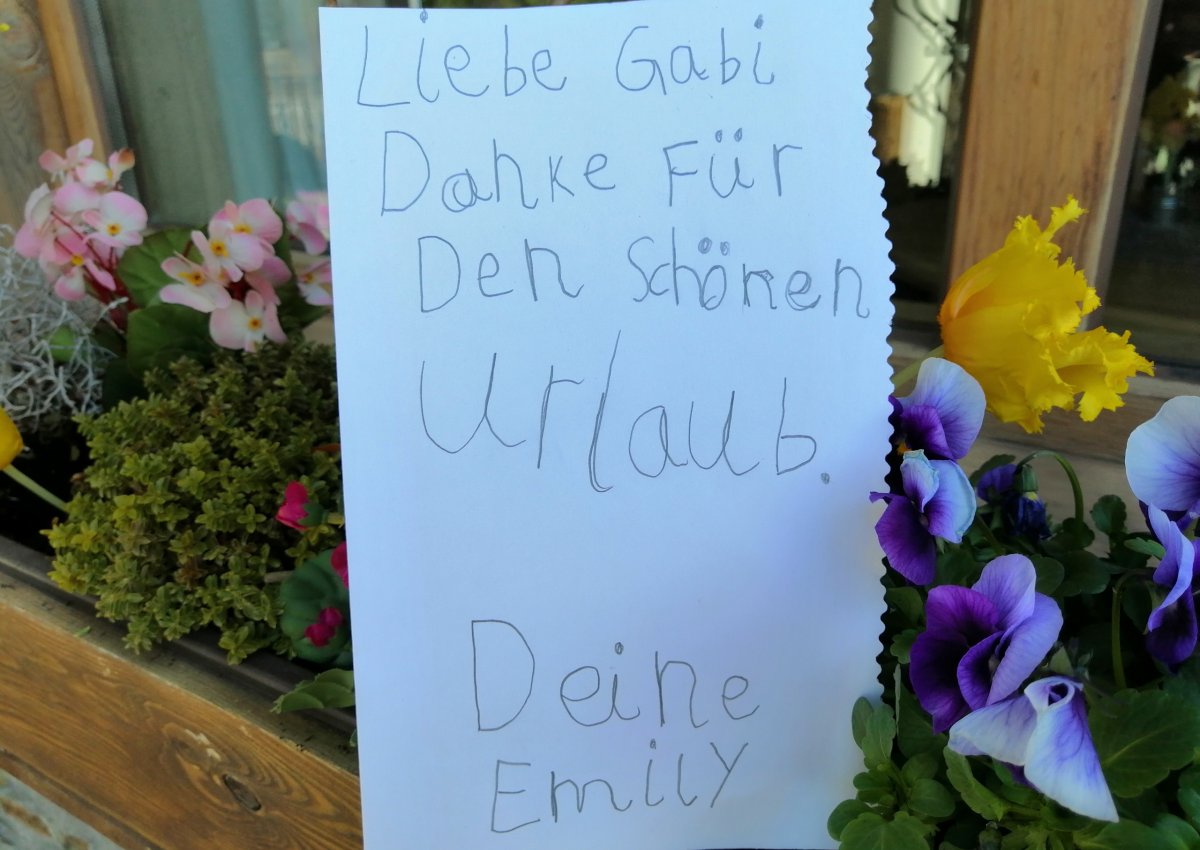 Liebe Gabi
Danke Für
Den Schönen
Urlaub.
Deine
Emily